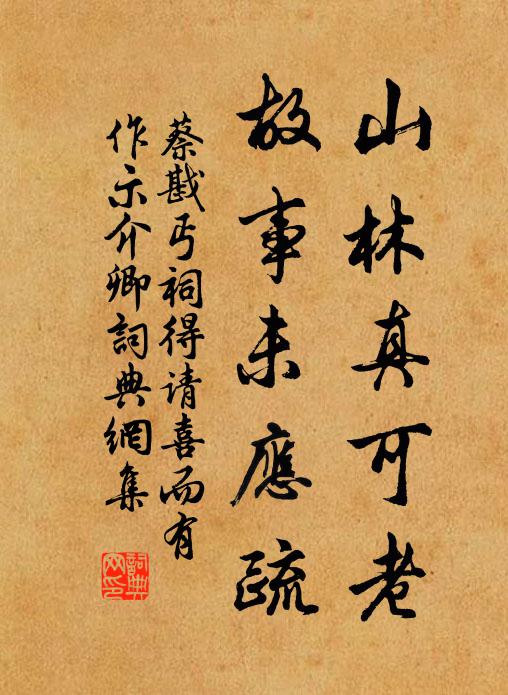 山林真可老
故事未應疏
蔡戡丐祠得请喜而有
作示介卿詞典網集
詞典网印